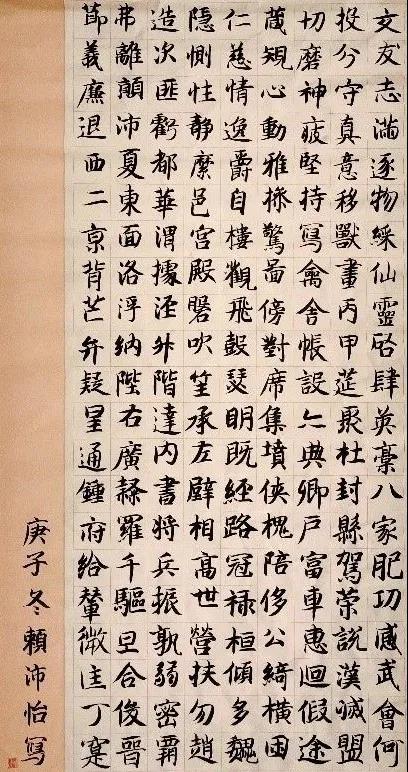 交友志滿逐物綵仙靈啓肆英稾八家肥功感武會何
投分守真意移獸畫丙甲筵聚杜封縣駕策說漢滅盟
切磨神疲堅持寫禽舍帳設亦典卿戶富車惠迴假途
箴規心動雅操驚圖傍對席集墳俠槐陪侈公綺橫困
仁慈情逸爵自樓觀飛鼓瑟明既經路冠祿桓傾多魏
隱惻性靜縻邑宮殿磐吹笙承左壁相高世營扶勿趙
造次匪虧都華渭據涇升階達內書將兵振孰弱密霸
弗離顛沛夏東面洛浮納陛右廣隸羅千驅旦合俊晉
節義廉退西二京背芒弁疑星通鍾府給輦微匡丁寔
庚子冬賴沛怡寫